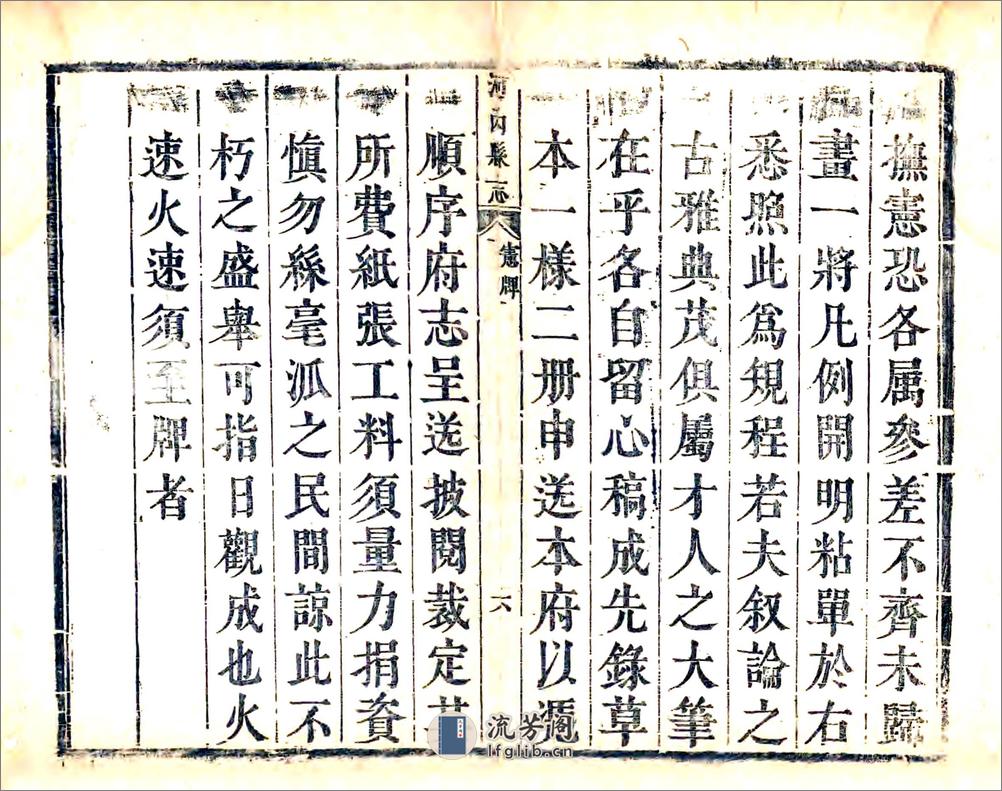 撫憲恐各属參差不齊未歸
畫一將凡例開明粘單於右
悉照此爲規程若夫叙論之
古雅典茂俱屬才人之大筆
在乎各自留心稿成先錄草
本一樣二册申送本府以憑
河內縣志
憲牌
六
順序府志呈送披閱裁定其
所費紙張工料須量力捐資
愼勿絲毫派之民間諒此不
朽之盛舉可指日觀成也火
速火速須至牌者
流芳阁
lfglib.cn